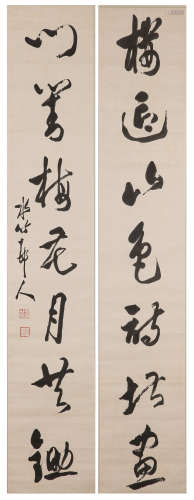 樓迎山色詩堪畫
門對梅花月共鋤
水竹邨人